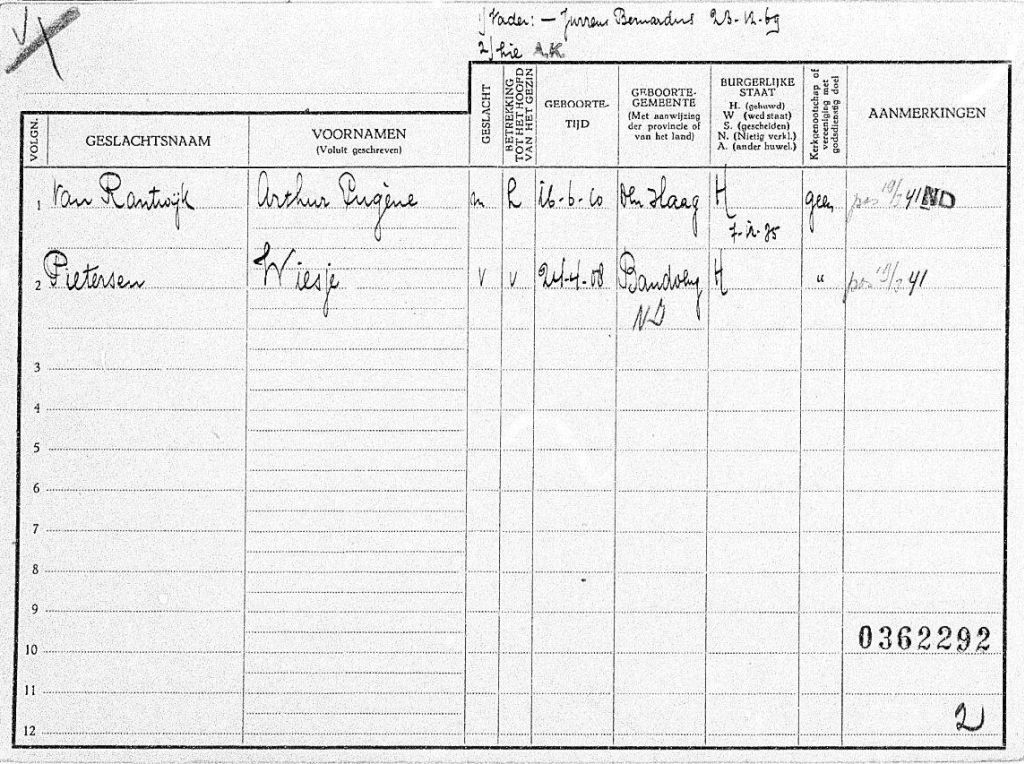 1) Vader: — Jurrens Bernardus 23-12-69
2) zie A.K.
VOLGN.
GESLACHTSNAAM
VOORNAMEN
(Voluit geschreven)
GESLACHT
BETREKKING TOT HET HOOFD VAN HET GEZIN
GEBOORTE-
TIJD
GEBOORTE-
GEMEENTE
(Met aanwijzing
der provincie of
van het land)
BURGERLIJKE
STAAT
H. (gehuwd)
W (wed staat)
S. (gescheiden)
N. (Nietig verkl.)
A. (ander huwel.)
Kerkgenootschap of
vereeniging met
godsdienstig doel
AANMERKINGEN
1 van Rantwijk Arthur Eugène m H 16-6-10 den Haag H geen 19/3 41 ND
7-12-35
2 Pietersen Wiesje v v 24-4-08 Bandoeng H " 19/3 41
ND
3
4
5
6
7
8
9
0362292
10
11
2
12